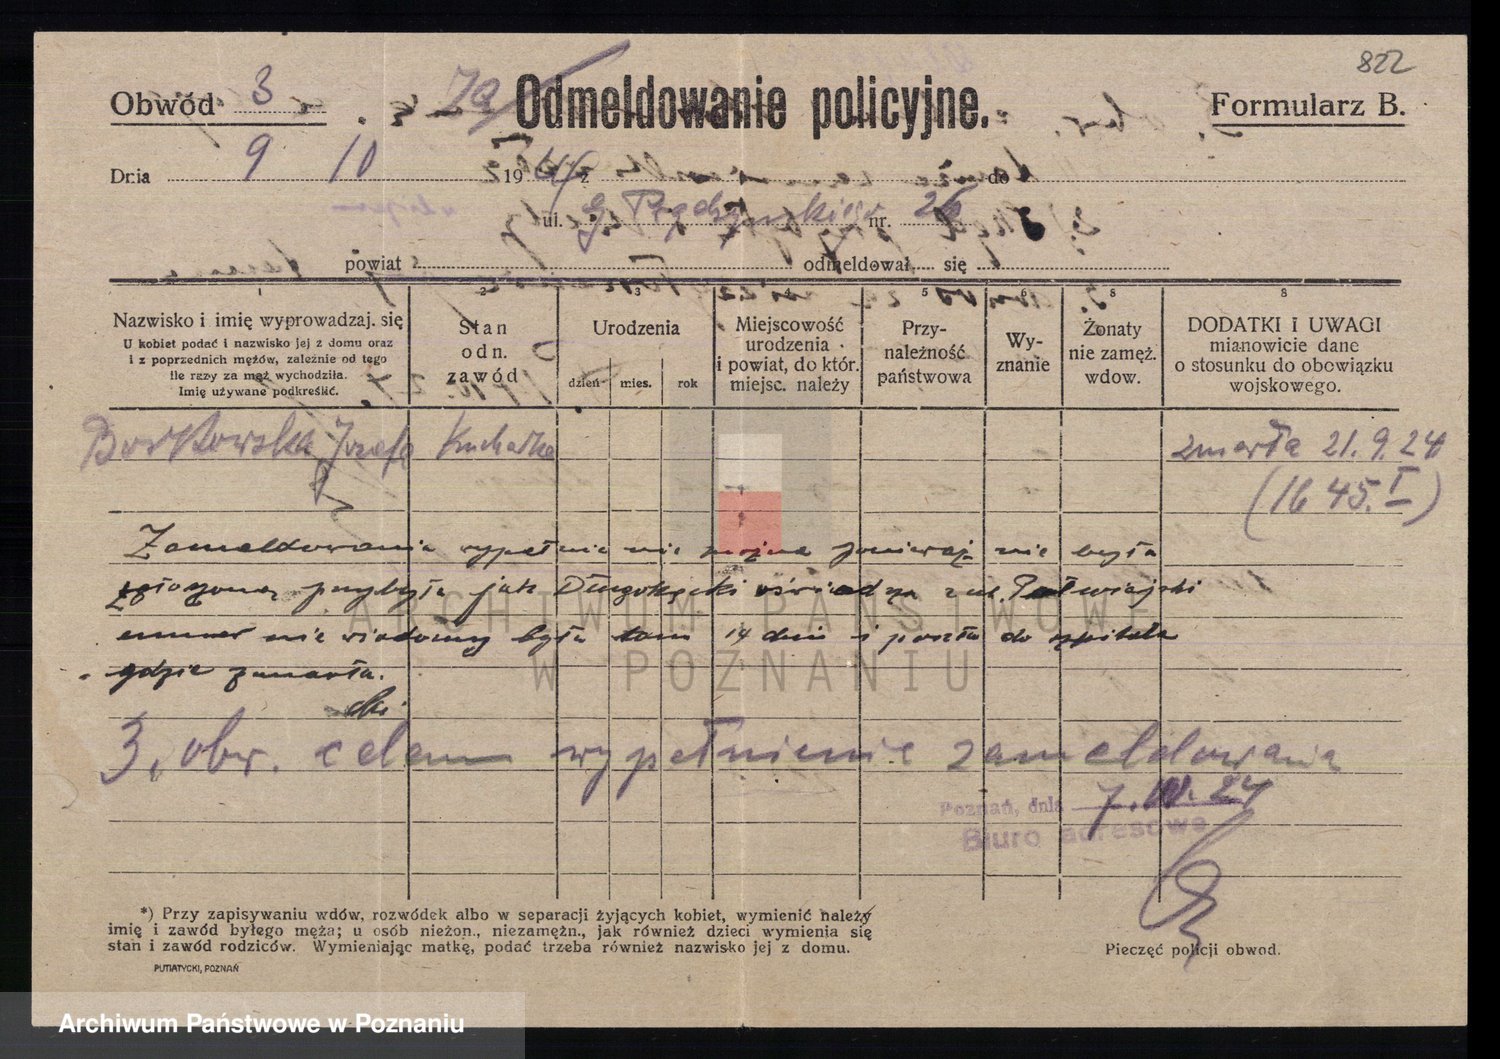 822
Obwód 3
Odmeldowanie policyjne.
Formularz B.
Dnia 9 10 1924 z do
ul. G. Prądzyńskiego nr. 26
powiat odmeldował się
1 2 3 4 5 6 8 8
Nazwisko i imię wyprowadzaj. się
U kobiet podać i nazwisko jej z domu oraz
i z poprzednich mężów, zależnie od tego
ile razy za mąż wychodziła.
Imię używane podkreślić.
Stan
odn.
zawód
Urodzenia
dzień mies. rok
Miejscowość
urodzenia
i powiat, do któr.
miejsc. należy
Przy-
należność
państwowa
Wy-
znanie
Żonaty
nie zamęż.
wdow.
DODATKI I UWAGI
mianowicie dane
o stosunku do obowiązku
wojskowego.
Borkowska Józefa Kucharka zmarła 21. 9. 24
(1645. I)
Zameldowania wypełnić nie można ponieważ nie była
zgłoszona przybyła jak Długokęcki oświadcza z ul. Półwiejski
numer nie wiadomy była tam 14 dni i poszła do szpitala
gdzie zmarła.
3. obw. celem wypełnienie zameldowania
Poznań, dnia 7. 24
Biuro adresowe
*) Przy zapisywaniu wdów, rozwódek albo w separacji żyjących kobiet, wymienić należy
imię i zawód byłego męża; u osób nieżon., niezamężn., jak również dzieci wymienia się
stan i zawód rodziców. Wymieniając matkę, podać trzeba również nazwisko jej z domu.
Pieczęć policji obwod.
PUTIATYCKI, POZNAŃ
ARCHIWUM PAŃSTWOWE
W POZNANIU
Archiwum Państwowe w Poznaniu